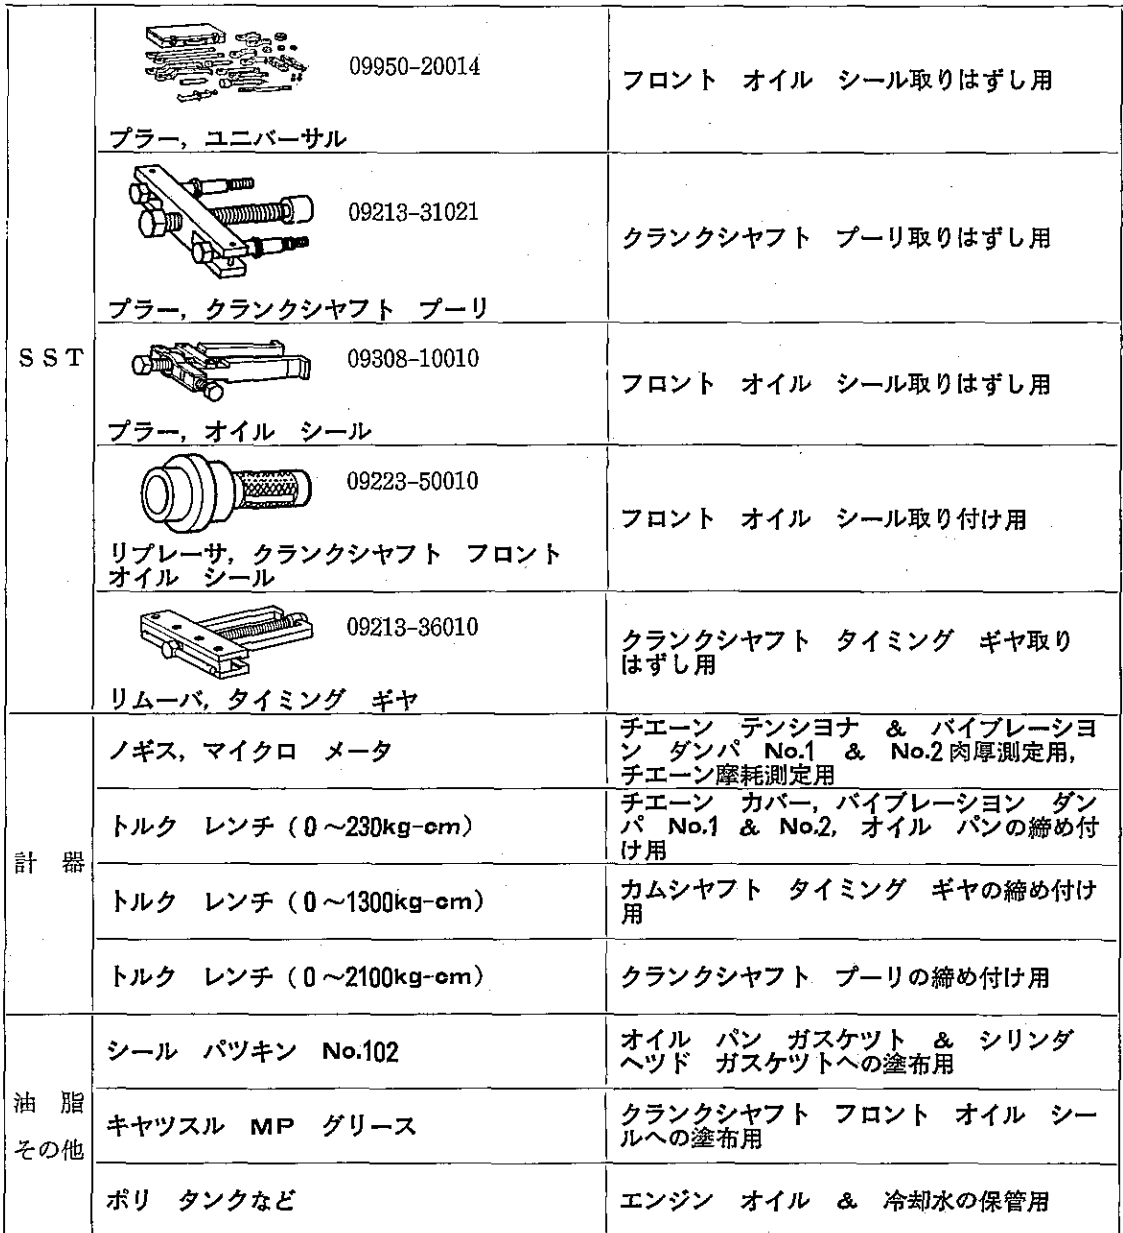 SST
09950-20014
プラー, ユニバーサル
フロント オイル シール取りはずし用
09213-31021
プラー, クランクシヤフト プーリ
クランクシヤフト プーリ取りはずし用
09308-10010
プラー, オイル シール
フロント オイル シール取りはずし用
09223-50010
リプレーサ, クランクシヤフト フロント
オイル シール
フロント オイル シール取り付け用
09213-36010
リムーバ, タイミング ギヤ
クランクシヤフト タイミング ギヤ取り
はずし用
計 器
ノギス, マイクロ メータ
チエーン テンシヨナ & バイブレーシヨ
ン ダンパ No.1 & No.2肉厚測定用,
チエーン摩耗測定用
トルク レンチ (0~230kg-cm)
チエーン カバー, バイブレーシヨン ダン
パ No.1 & No.2, オイル パンの締め付
け用
トルク レンチ (0~1300kg-cm)
カムシヤフト タイミング ギヤの締め付け
用
トルク レンチ (0~2100kg-cm)
クランクシヤフト プーリの締め付け用
油 脂
その他
シール パツキン No.102
オイル パン ガスケツト & シリンダ
ヘツド ガスケツトへの塗布用
キヤツスル MP グリース
クランクシヤフト フロント オイル シー
ルへの塗布用
ポリ タンクなど
エンジン オイル & 冷却水の保管用